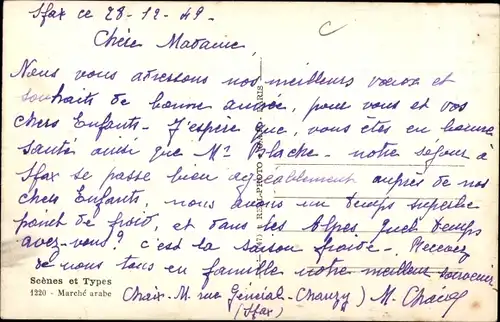 Sfax ce 28-12-49.
Chère Madame,
Nous vous adressons nos meilleurs voeux et
souhaits de bonne année, pour vous et vos
chers Enfants - J'espère que, vous êtes en bonne
santé ainsi que Mr Blache - notre séjour à
Sfax se passe bien agréablement auprès de nos
chers Enfants, nous avons un temps superbe
point de froid, et dans les Alpes, quel temps
avez-vous? c'est la saison froide - Recevez
de nous tous en famille notre meilleur souvenir
Scènes et Types
1220 - Marché arabe
Chaix - M. rue Général-Chanzy) M. Chaix
(Sfax)